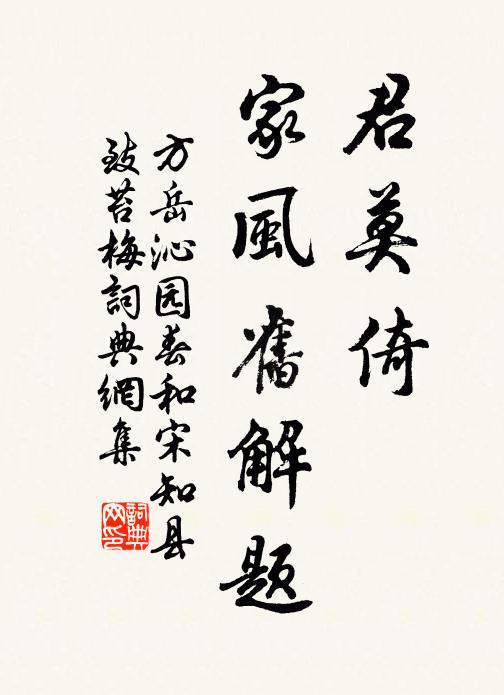 君莫倚
家風舊解題
方岳沁园春和宋知县
致苔梅詞典網集
詞典
网印